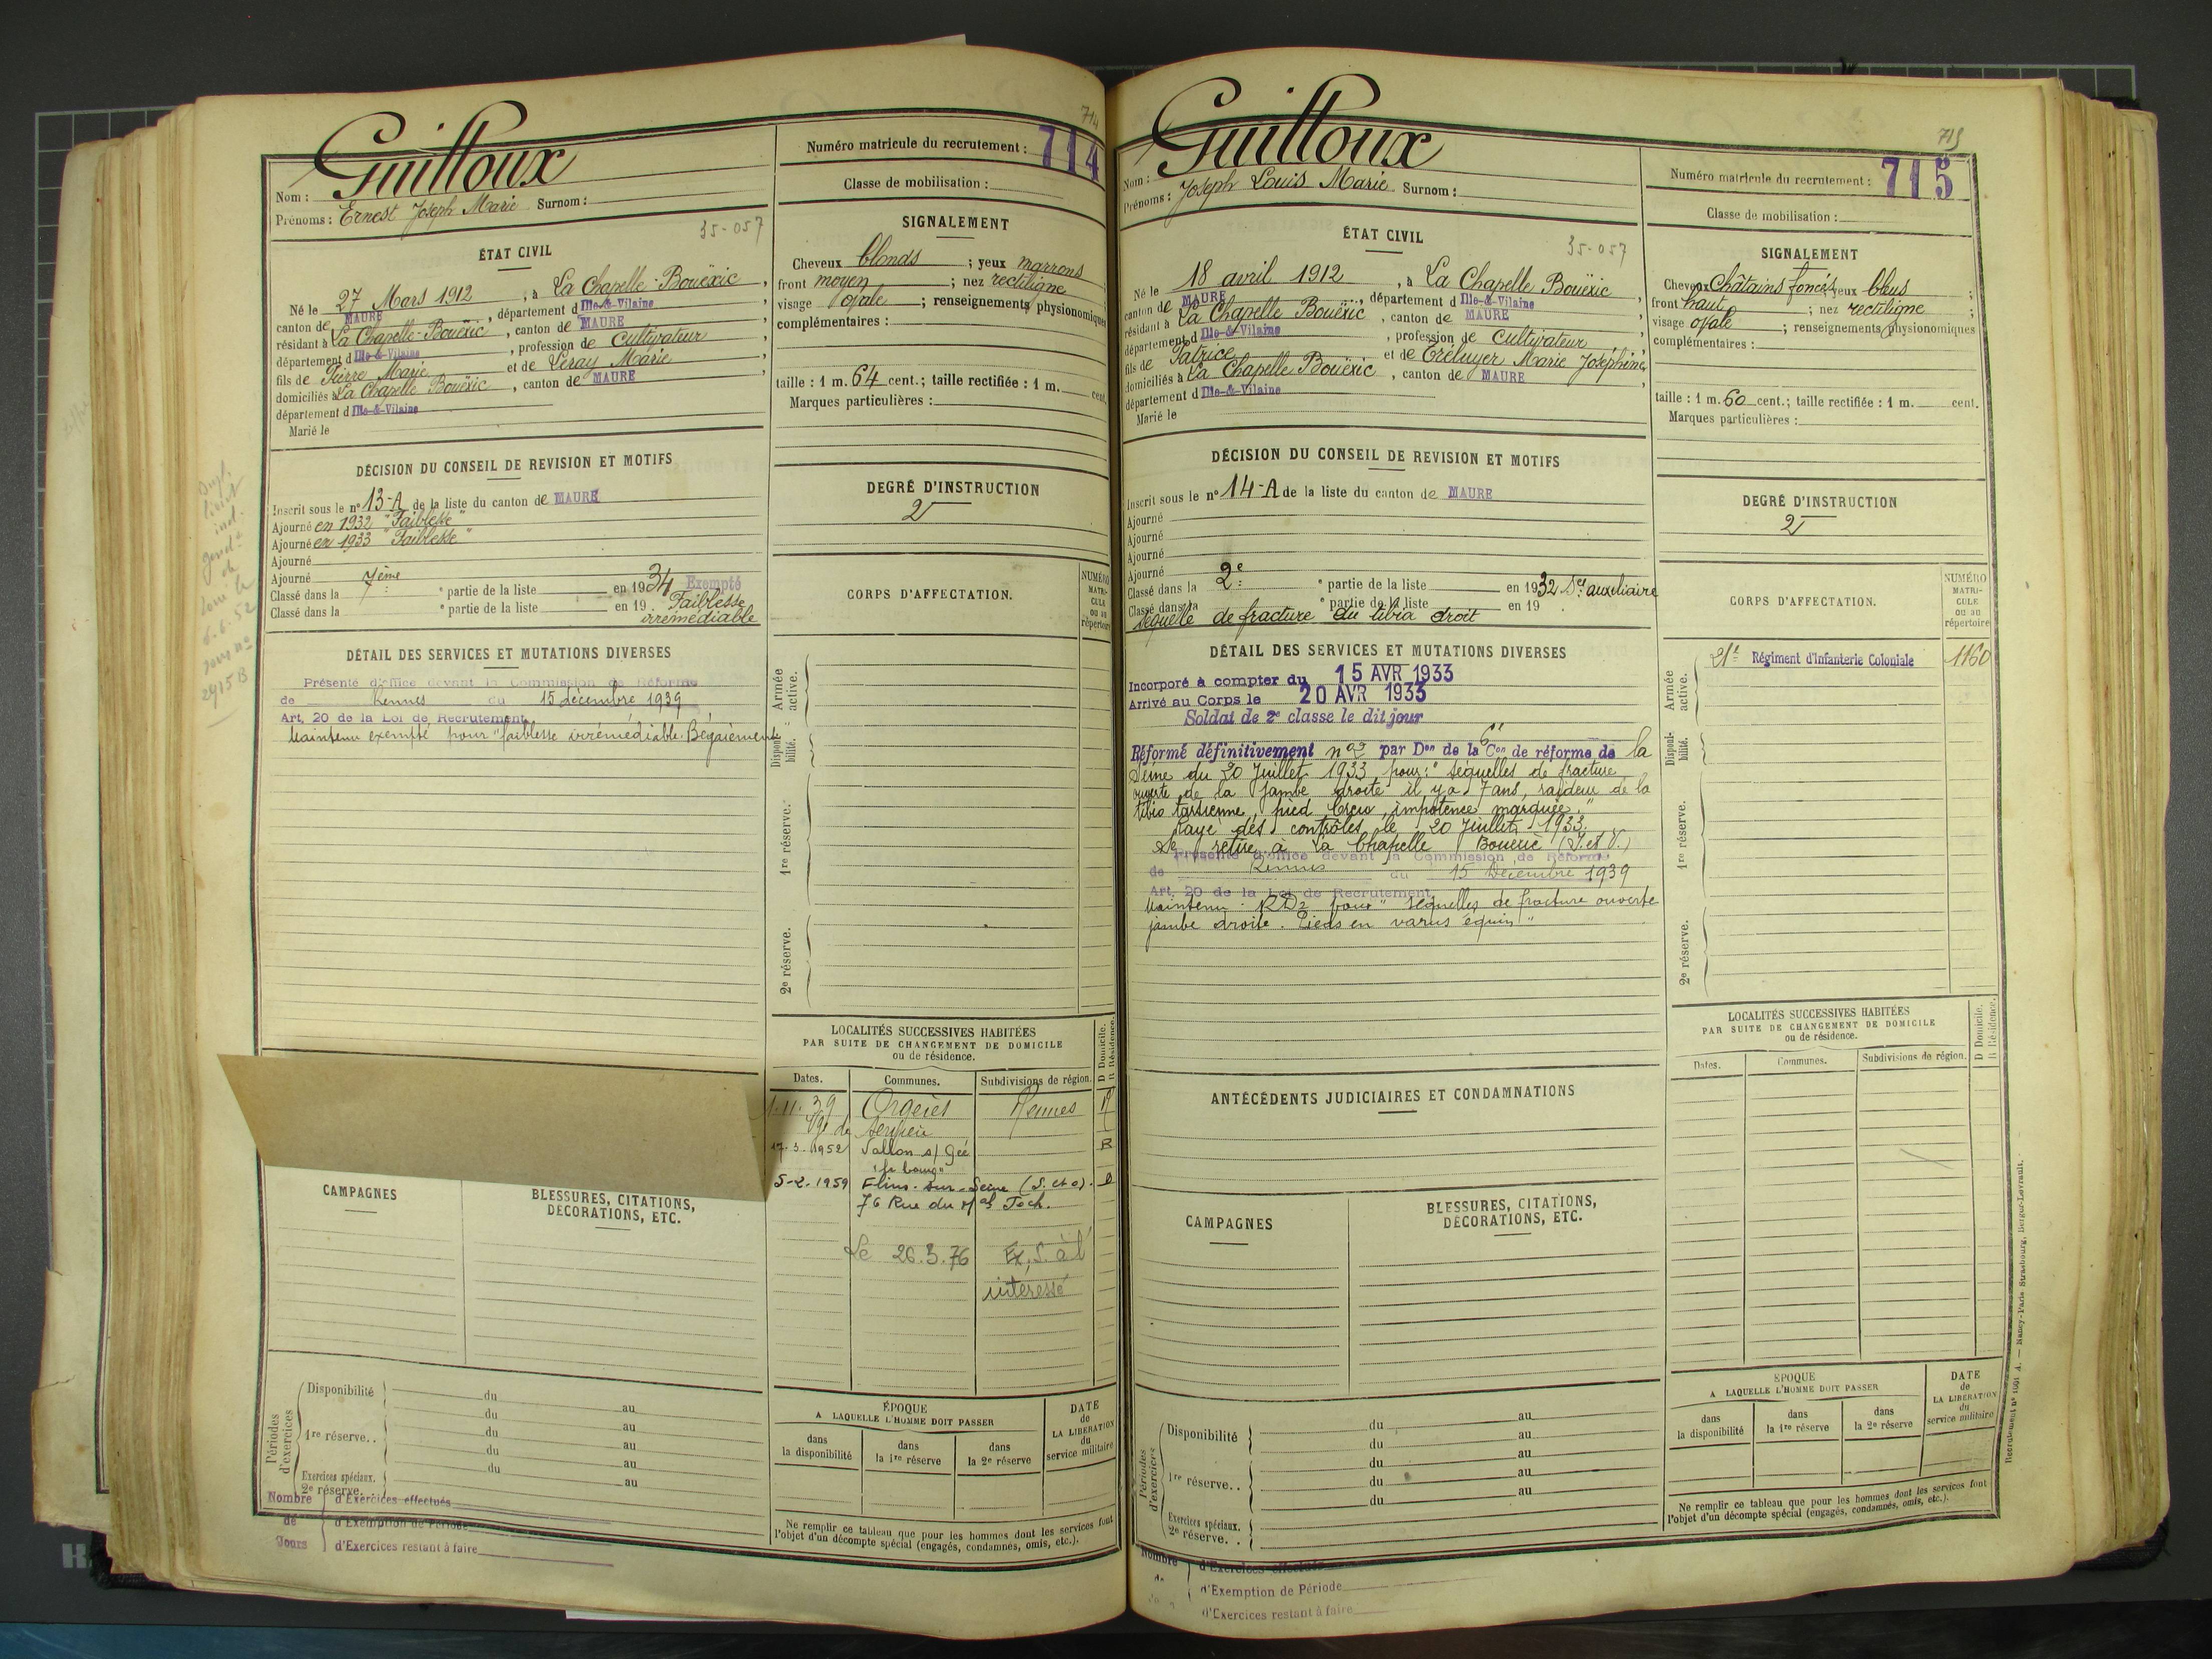 714
Guilloux
Nom :
Prénoms : Ernest Joseph Marie Surnom :
35-057
ÉTAT CIVIL
Né le 27 Mars 1912, à La Chapelle-Bouëxic,
canton de MAURE, département d Ille-&-Vilaine,
résidant à La Chapelle-Bouëxic, canton de MAURE
département d Ille-&-Vilaine, profession de Cultivateur,
fils de Pierre Marie et de Leray Marie,
domiciliés à La Chapelle Bouëxic, canton de MAURE,
département d Ille-&-Vilaine
Marié le
DÉCISION DU CONSEIL DE REVISION ET MOTIFS
Inscrit sous le n° 13-A de la liste du canton de MAURE
Ajourné en 1932 "Faiblesse"
Ajourné en 1933 "Faiblesse"
Ajourné
Ajourné
Classé dans la 7ème e partie de la liste en 1934 Exempté
Classé dans la e partie de la liste en 19 . Faiblesse
irrémédiable
DÉTAIL DES SERVICES ET MUTATIONS DIVERSES
Présenté d'office devant la Commission de Réforme
de Rennes du 15 décembre 1939
Art. 20 de la Loi de Recrutement
Maintenu exempté pour "faiblesse irrémédiable. Bégaiement
CAMPAGNES
BLESSURES, CITATIONS,
DÉCORATIONS, ETC.
Périodes d'exercices
Disponibilité du au
du au
1re réserve. . du au
du au
Exercices spéciaux. du au
2e réserve. .
Nombre de Jours
d'Exercices effectués
d'Exemption de Période
d'Exercices restant à faire
Numéro matricule du recrutement : 714
Classe de mobilisation :
SIGNALEMENT
Cheveux blonds ; yeux marrons
front moyen ; nez rectiligne
visage ovale ; renseignements physionomiques
complémentaires :
taille : 1 m. 64 cent.; taille rectifiée : 1 m. cent.
Marques particulières :
DEGRÉ D'INSTRUCTION
2
CORPS D'AFFECTATION.
NUMÉRO MATRI-CULE ou au répertoire
Armée active.
Disponi-bilité.
1re réserve.
2e réserve.
LOCALITÉS SUCCESSIVES HABITÉES
PAR SUITE DE CHANGEMENT DE DOMICILE
ou de résidence.
D Domicile.
R Résidence.
Dates. Communes. Subdivisions de région.
1.11.39 Orgères Rennes R
17.3.1952 Vallon s/ Gée R
"le bourg"
5-2.1959 Flins-sur-Seine (S. et O). D
76 Rue du Mal Foch.
Le 26.3.76 Ex. S. à l'
intéressé
ÉPOQUE
A LAQUELLE L'HOMME DOIT PASSER
dans la disponibilité
dans la 1re réserve
dans la 2e réserve
DATE de LA LIBÉRATION du service militaire
Ne remplir ce tableau que pour les hommes dont les services font
l'objet d'un décompte spécial (engagés, condamnés, omis, etc.).
715
Guilloux
Nom :
Prénoms : Joseph Louis Marie Surnom :
35-057
ÉTAT CIVIL
Né le 18 avril 1912, à La Chapelle Bouëxic,
canton de MAURE, département d Ille-&-Vilaine,
résidant à La Chapelle Bouëxic, canton de MAURE
département d Ille-&-Vilaine, profession de Cultivateur,
fils de Patrice et de Tréluyer Marie Joséphine,
domiciliés à La Chapelle Bouëxic, canton de MAURE,
département d Ille-&-Vilaine
Marié le
DÉCISION DU CONSEIL DE REVISION ET MOTIFS
Inscrit sous le n° 14-A de la liste du canton de MAURE
Ajourné
Ajourné
Ajourné
Ajourné
Classé dans la 2e e partie de la liste en 1932 Sce auxiliaire
Classé dans la e partie de la liste en 19
Séquelle de fracture du tibia droit
DÉTAIL DES SERVICES ET MUTATIONS DIVERSES
Incorporé à compter du 15 AVR 1933
Arrivé au Corps le 20 AVR 1933
Soldat de 2e classe le dit jour
Réformé définitivement n°2 par Don de la 6e Con de réforme de la
Seine du 20 Juillet 1933 pour : "séquelles de fracture
ouverte de la jambe droite il y a 7 ans, raideur de la
tibio tarsienne, pied creux, impotence marquée."
Rayé des contrôles le 20 Juillet 1933.
Se retire à La Chapelle Bouëxic (I. et V.)
Présenté d'office devant la Commission de Réforme
de Rennes du 15 Décembre 1939
Art. 20 de la Loi de Recrutement.
Maintenu RD2 pour "séquelles de fracture ouverte
jambe droite. Pieds en varus équin"
ANTÉCÉDENTS JUDICIAIRES ET CONDAMNATIONS
CAMPAGNES
BLESSURES, CITATIONS,
DÉCORATIONS, ETC.
Périodes d'exercices
Disponibilité du au
du au
1re réserve. . du au
du au
Exercices spéciaux. du au
2e réserve. .
Nombre
d'Exercices effectués
d'Exemption de Période
d'Exercices restant à faire
Numéro matricule du recrutement : 715
Classe de mobilisation :
SIGNALEMENT
Cheveux Châtains foncés yeux bleus ;
front haut ; nez rectiligne ;
visage ovale ; renseignements physionomiques
complémentaires :
taille : 1 m. 60 cent.; taille rectifiée : 1 m. cent.
Marques particulières :
DEGRÉ D'INSTRUCTION
2
CORPS D'AFFECTATION.
NUMÉRO MATRI-CULE ou au répertoire
Armée active.
21e Régiment d'Infanterie Coloniale 1160
Disponi-bilité.
1re réserve.
2e réserve.
LOCALITÉS SUCCESSIVES HABITÉES
PAR SUITE DE CHANGEMENT DE DOMICILE
ou de résidence.
D Domicile.
R Résidence.
Dates. Communes. Subdivisions de région.
ÉPOQUE
A LAQUELLE L'HOMME DOIT PASSER
dans la disponibilité
dans la 1re réserve
dans la 2e réserve
DATE de LA LIBÉRATION du service militaire
Ne remplir ce tableau que pour les hommes dont les services font
l'objet d'un décompte spécial (engagés, condamnés, omis, etc.).
Nancy-Paris-Strasbourg, Berger-Levrault.